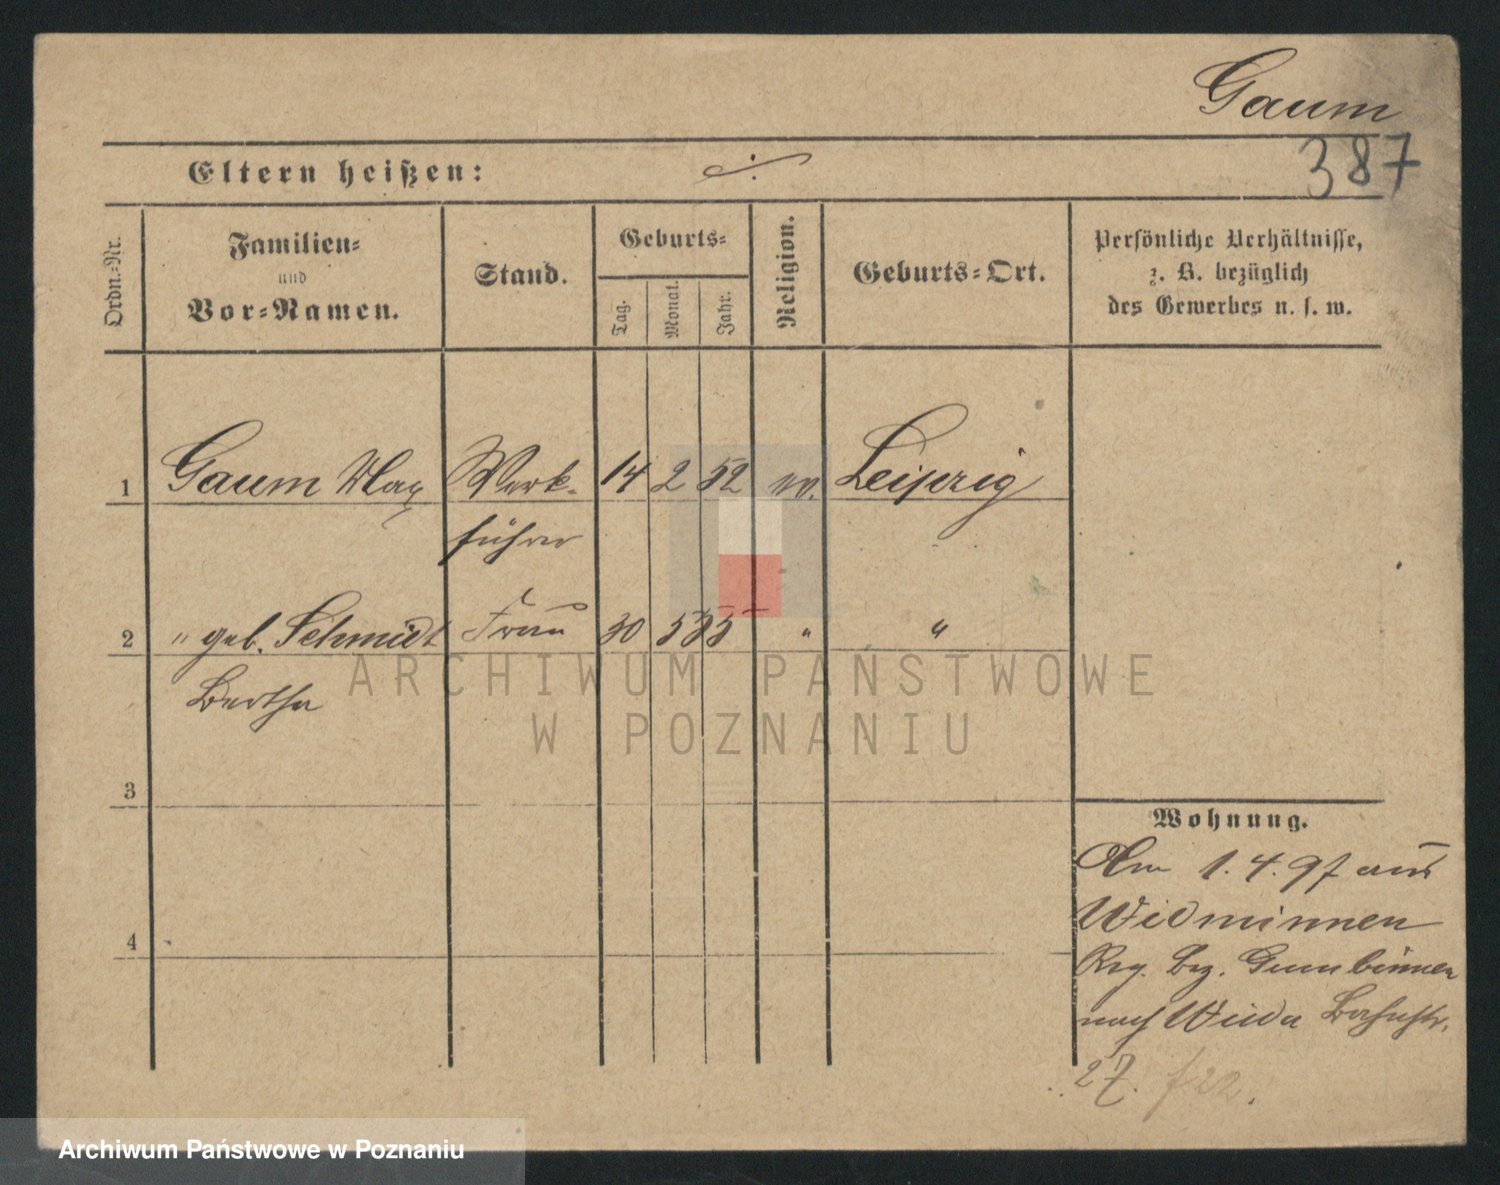 Gaum
387
Eltern heißen:
Ordn.-Nr.
Familien-
und
Vor-Namen.
Stand.
Geburts-
Tag.
Monat.
Jahr.
Religion.
Geburts-Ort.
Persönliche Verhältnisse,
z. B. bezüglich
des Gewerbes u. s. w.
1 Gaum Max Werk- 14 2 52 ev. Leipzig
führer
2 " geb. Schmidt Frau 30 5 55 " "
Bertha
3
4
Wohnung.
Am 1.4.97 aus
Widminnen
Reg. Bez. Gumbinnen
nach Wilda Bahnstr.
27.
ARCHIWUM PAŃSTWOWE
W POZNANIU
Archiwum Państwowe w Poznaniu